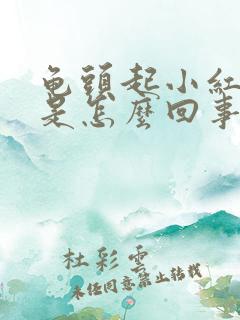 龟頭起小紅
是怎麼回事
杜彩雲
未经同意禁止转载